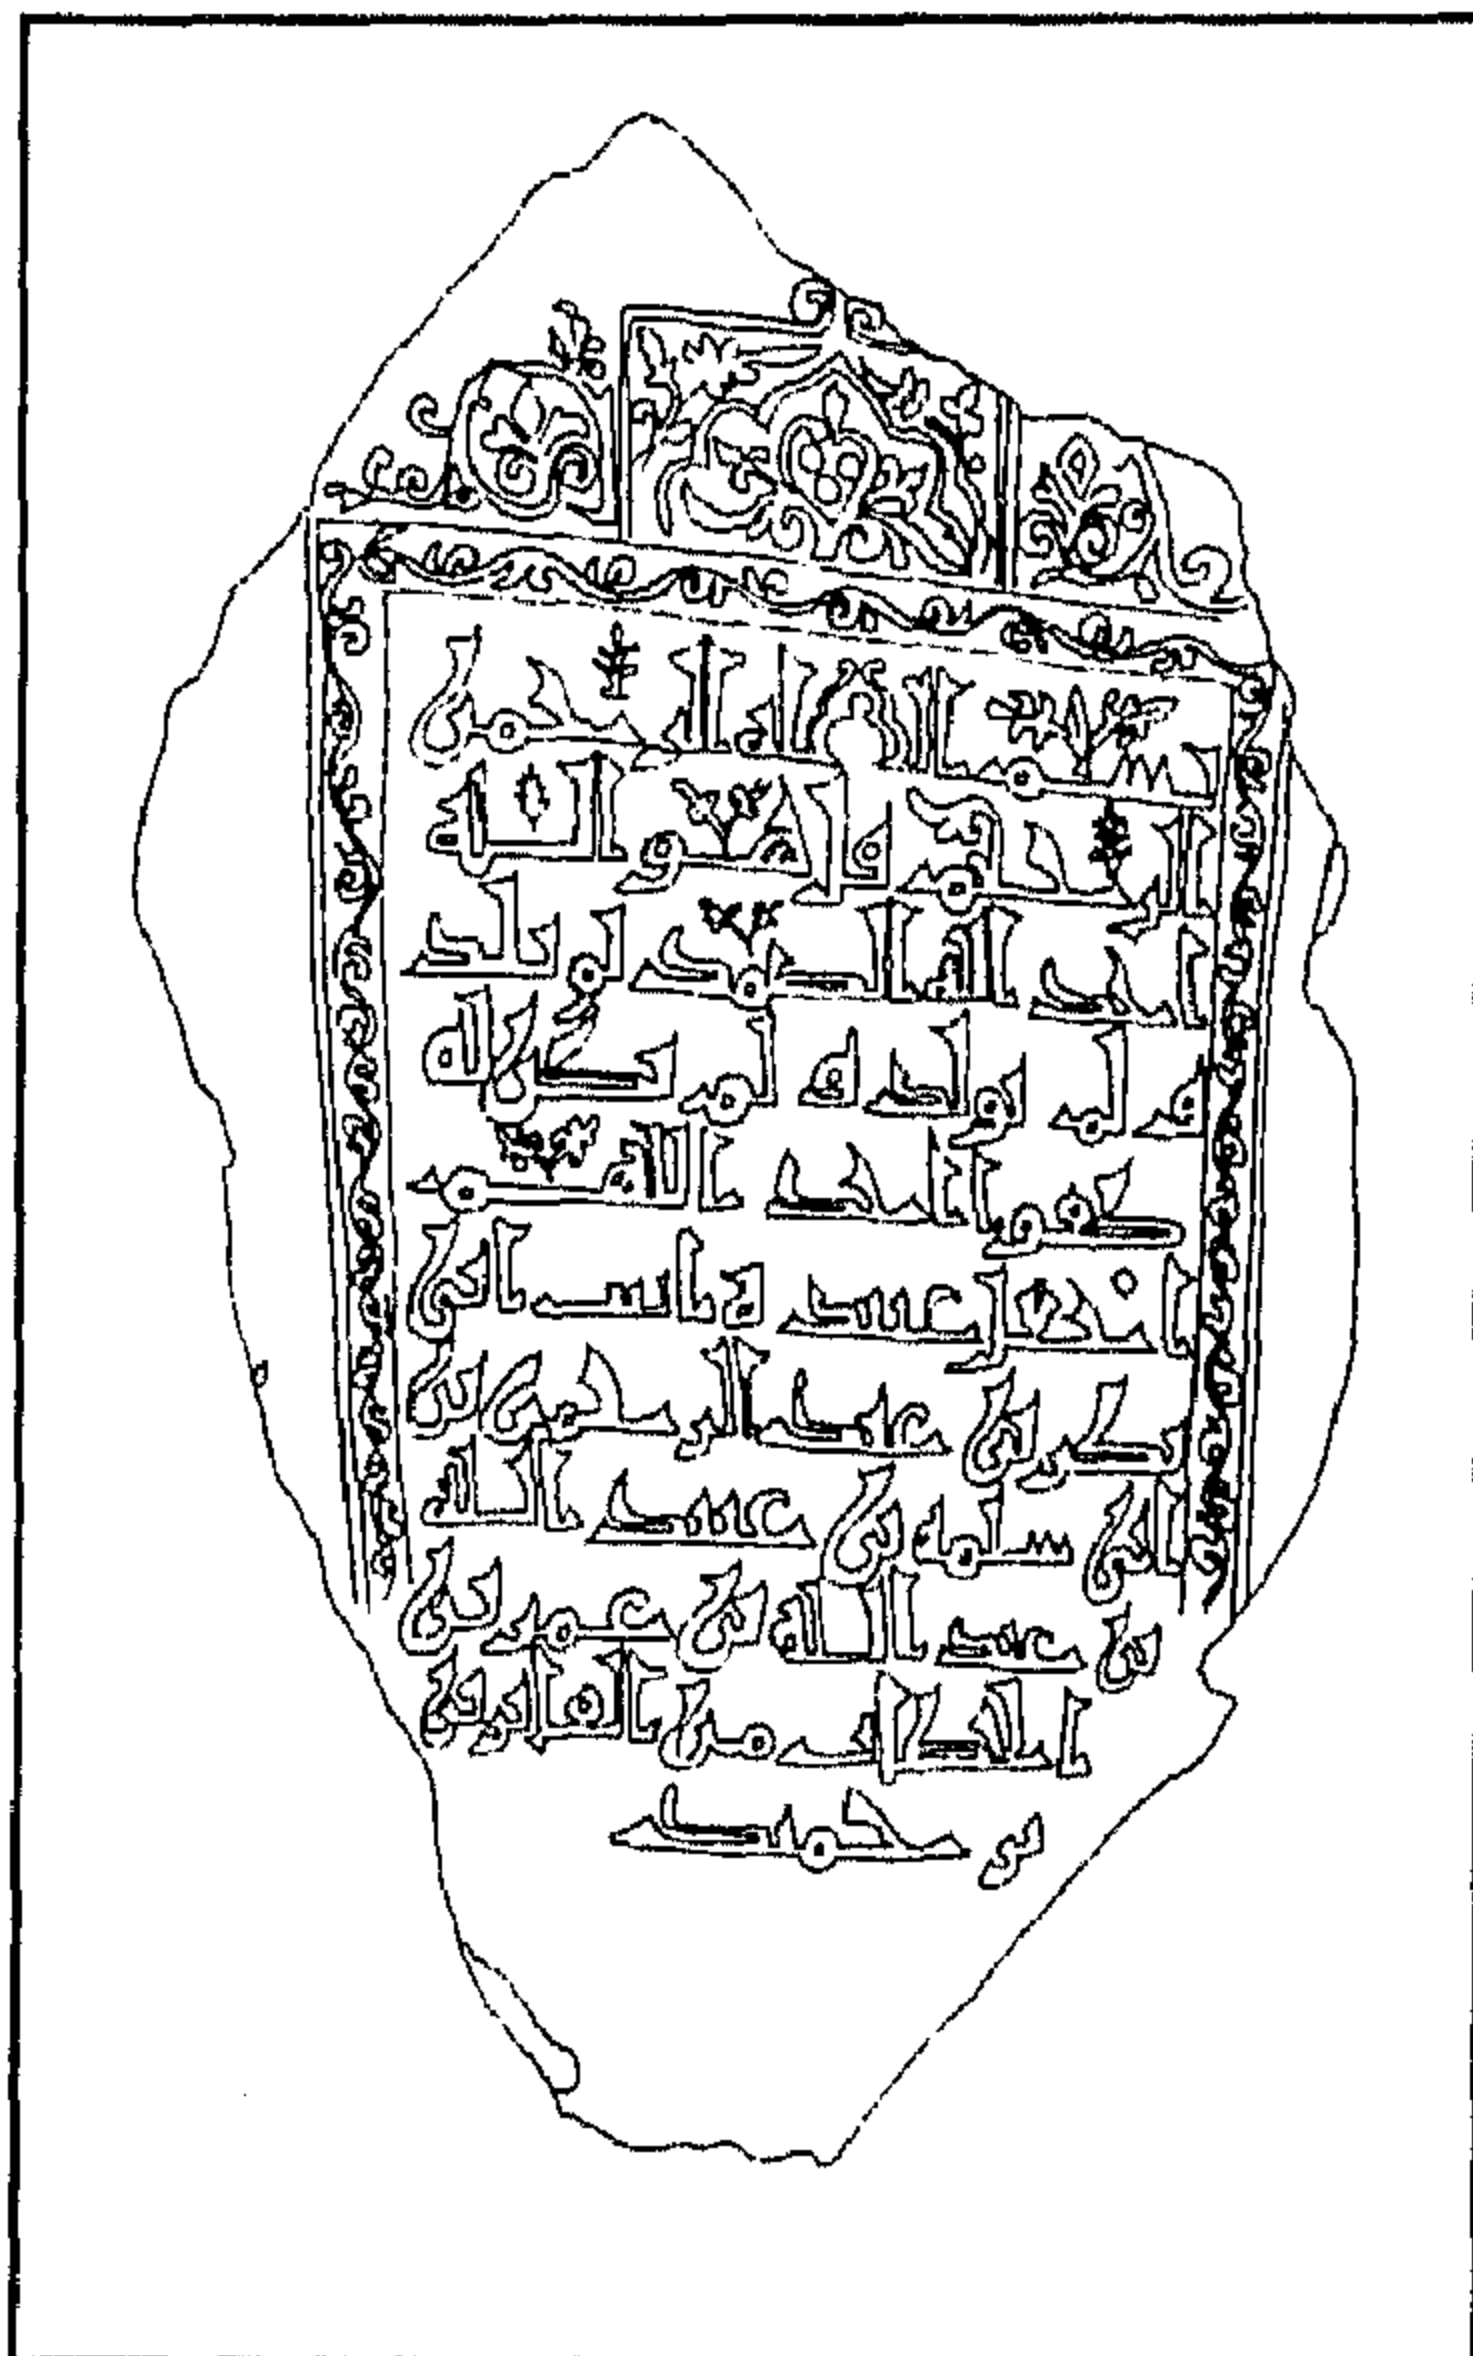 بسم الله الرحمن
الرحيم قل هو الله
احد الله الصمد لم يلد
ولم يولد ولم يكن له
كفوا احد اللهم
اغفر ابن
بكر بن عبد الرحمن بن
ابي سلمة بن عبد الله
بن عبد الله بن عمر بن
الخطاب من